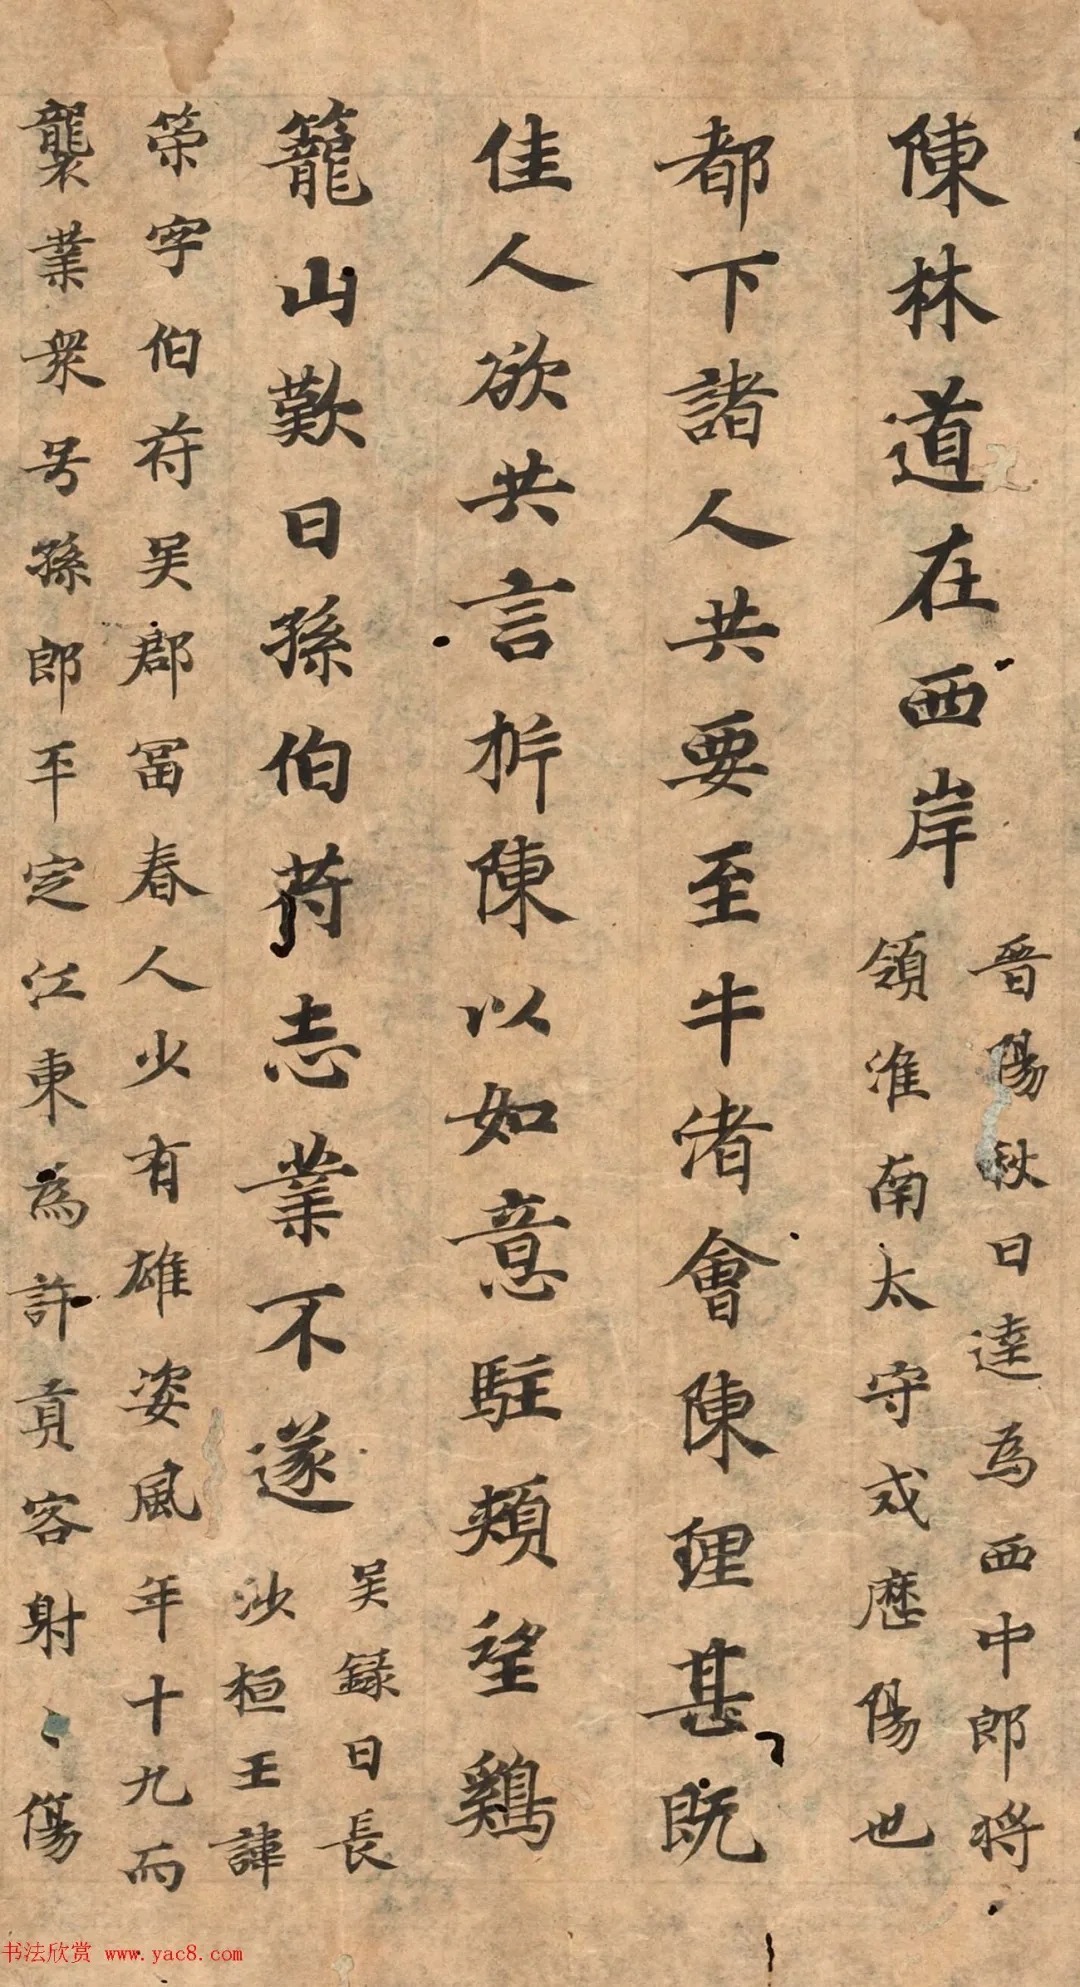 陳林道在西岸
晉陽秋曰逵為西中郎將
領淮南太守戍歷陽也
都下諸人共要至牛渚會陳理甚既
佳人欲共言折陳以如意駐頰望鷄
籠山歎曰孫伯苻志業不遂
吴録曰長
沙桓王諱
榮字伯苻吴郡冨春人少有雄姿風年十九而
襲業衆号孫郎平定江東為許貢客射〻傷
书法欣赏 www.yac8.com